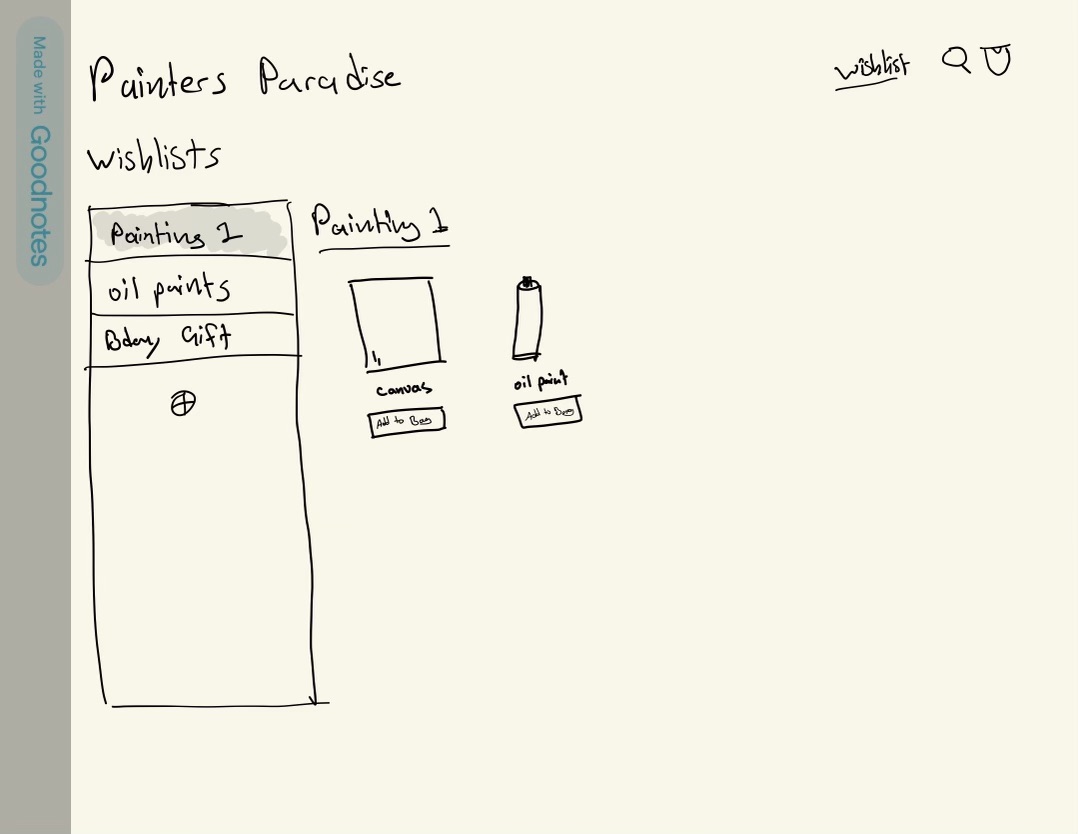 Made with Goodnotes
Painters Paradise
wishlist
wishlists
Painting 1
oil paints
Bday Gift
Painting 1
canvas
Add to Bag
oil paint
Add to Bag